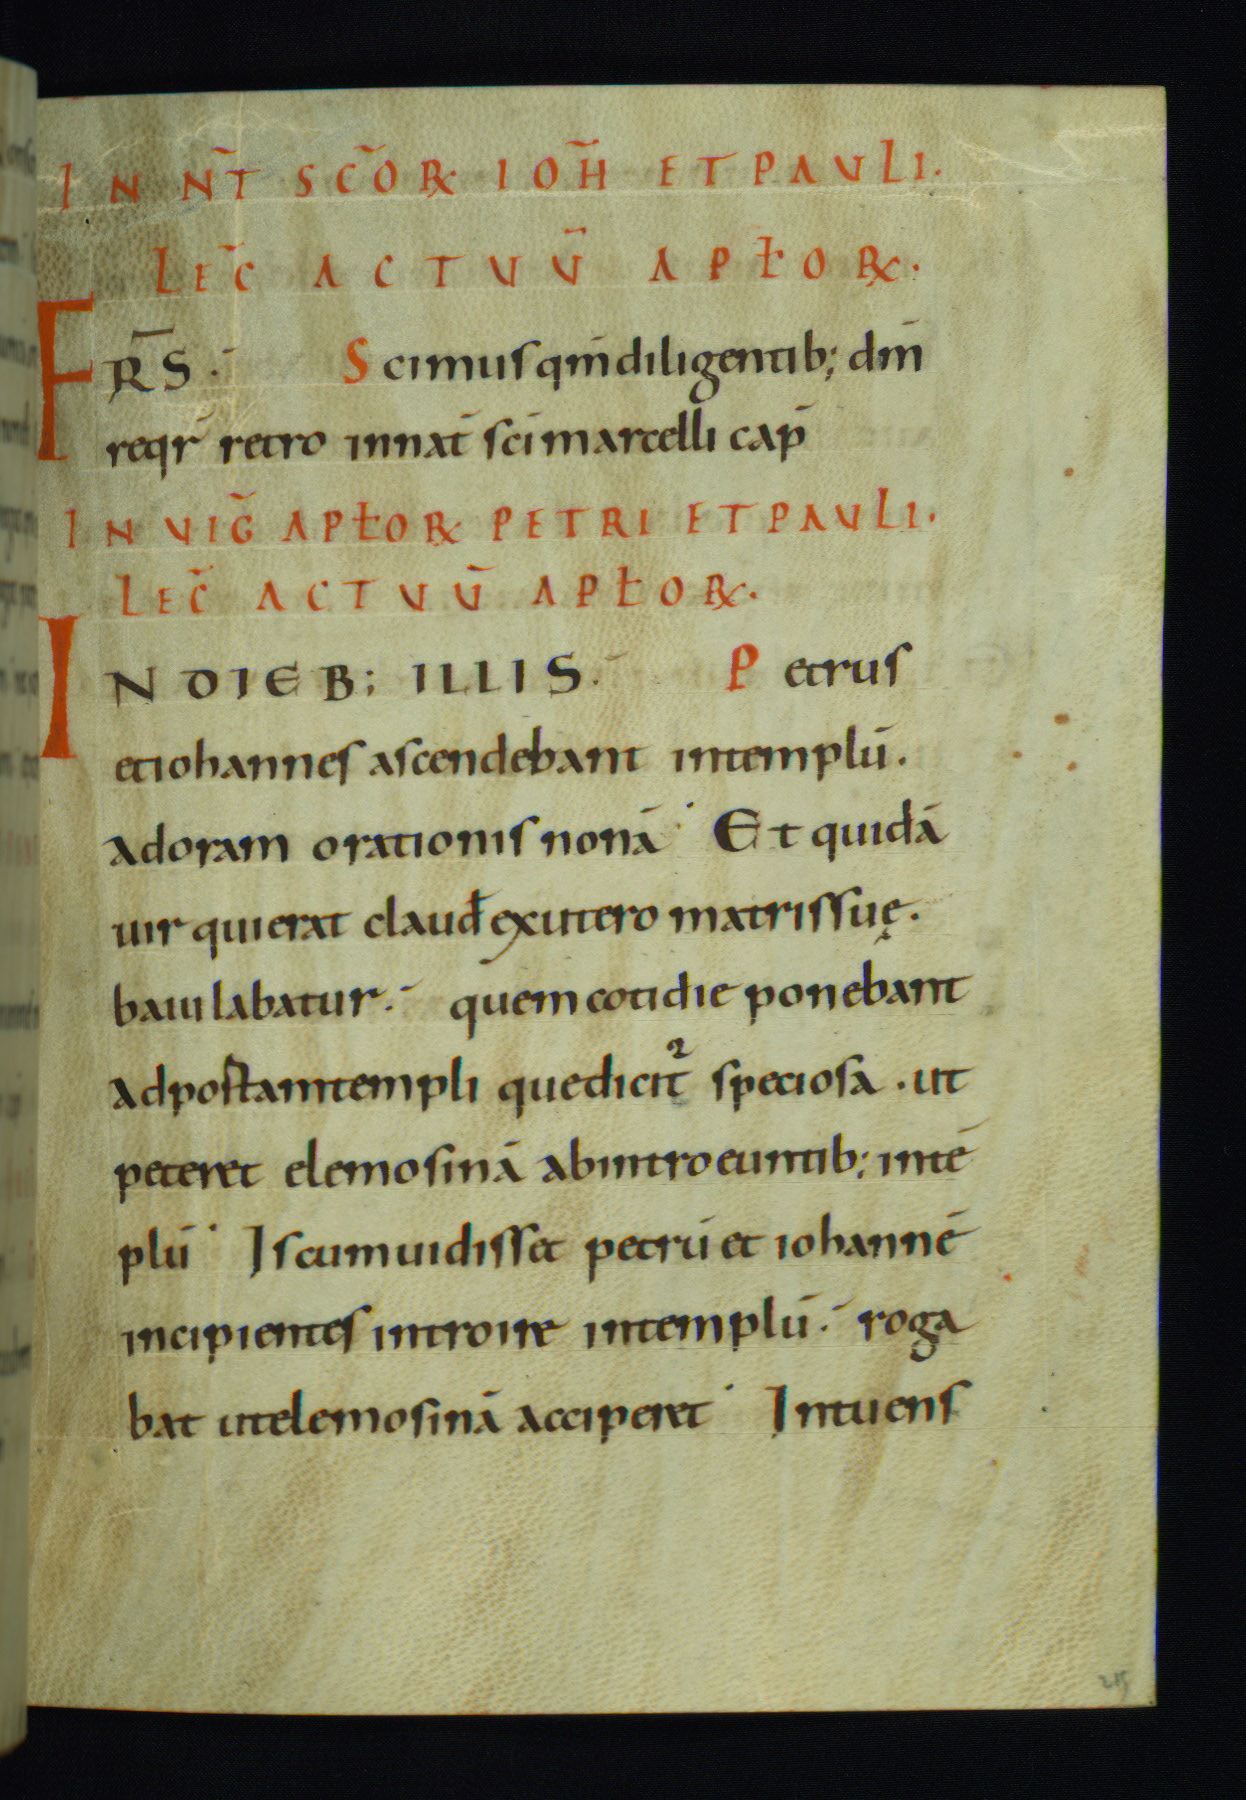 IN NT̄ SC̄ORꝜ IOH̄ ET PAVLI.
LEC̄ ACTVVV̄ APŁORꝜ.
FR̄S. Scimus qm̄ diligentib; dm̄
reqr̄ retro in nat̄ sc̄i marcelli cap̄
IN VIḠ APŁORꝜ PETRI ET PAVLI.
LEC̄ ACTVV̄ APŁORꝜ.
IN DIEB; ILLIS. Petrus
et iohannes ascendebant in templū.
ad oram orationis nonā Et quidā
uir qui erat claud̄ ex utero matris suę.
baiulabatur. quem cotidie ponebant
ad postam templi que dicit᷑ speciosa . ut
peteret elemosinā ab introeuntib; in tē
plū Is cum uidisset petrū et iohannē
incipientes introire in templū. roga
bat ut elemosinā acciperet Intuens
215